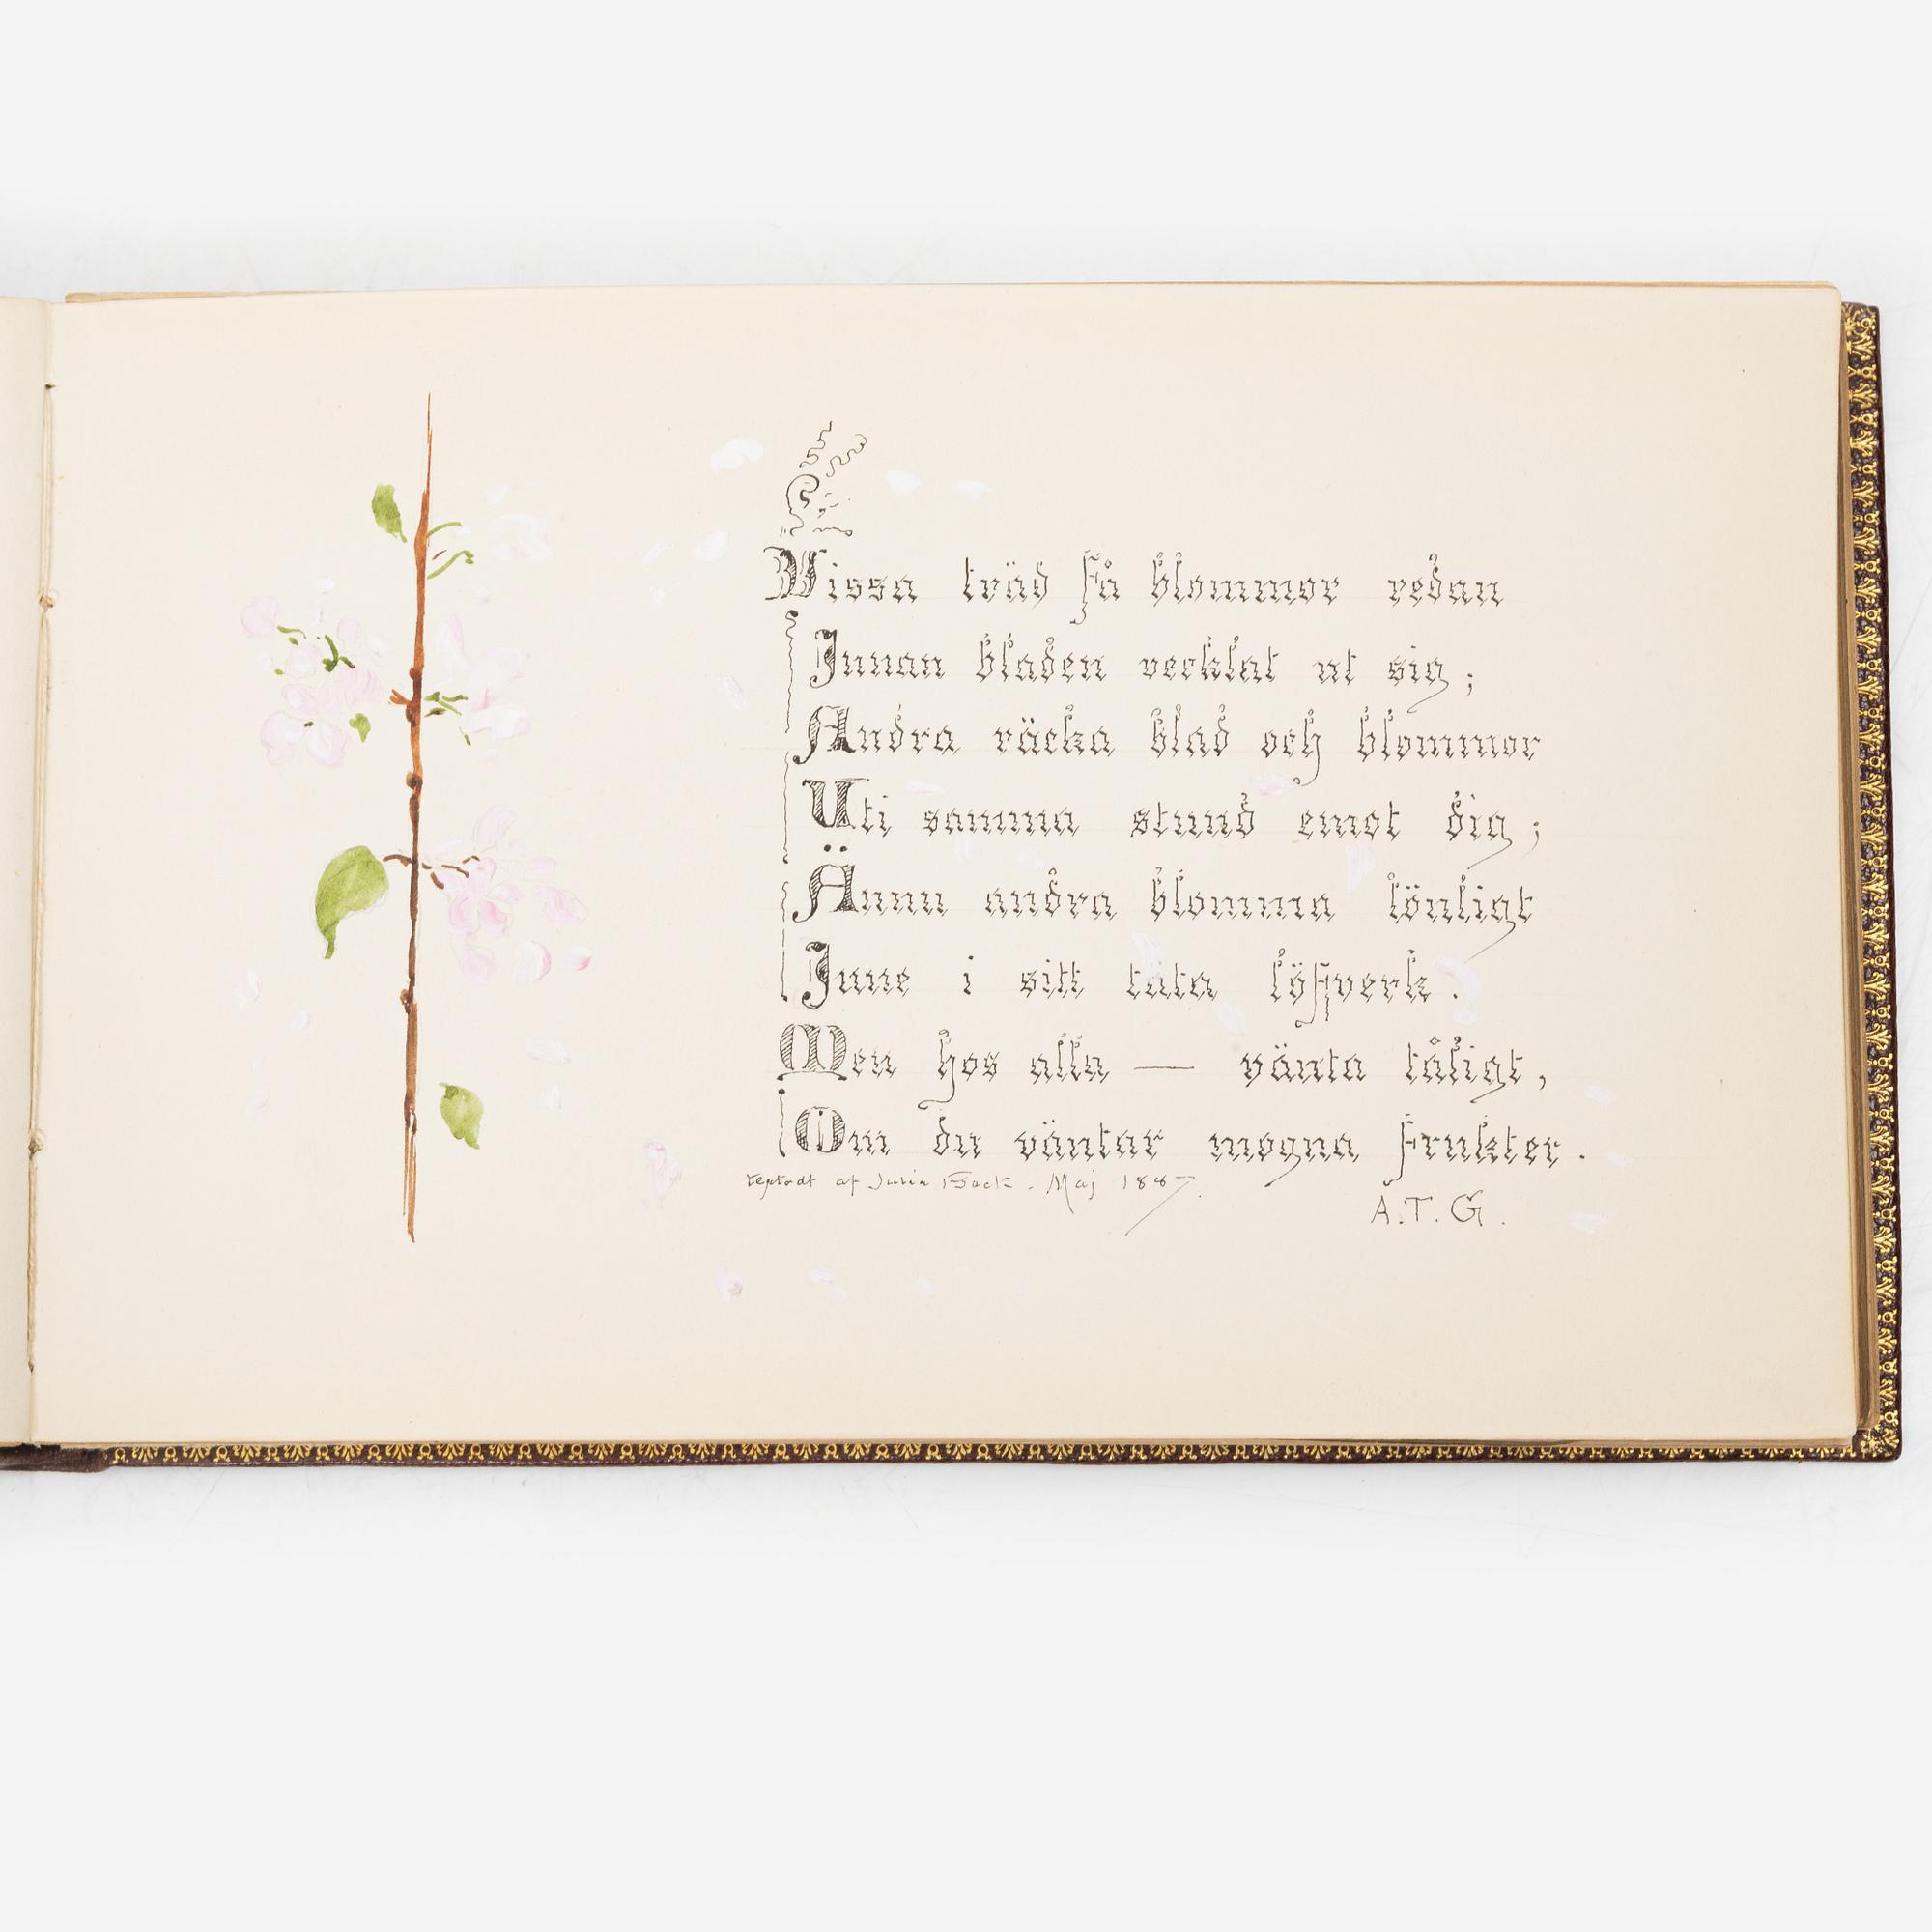 Wissa träd få blommor redan
Innan bladen vecklat ut sig;
Andra räcka blad och blommor
Uti samma stund emot dig;
Ännu andra blomma lönligt
Inne i sitt täta löfverk.
Men hos alla — vänta tåligt,
Om du väntar mogna frukter.
textadt af Julia Beck. Maj 1887.
A.T.G.